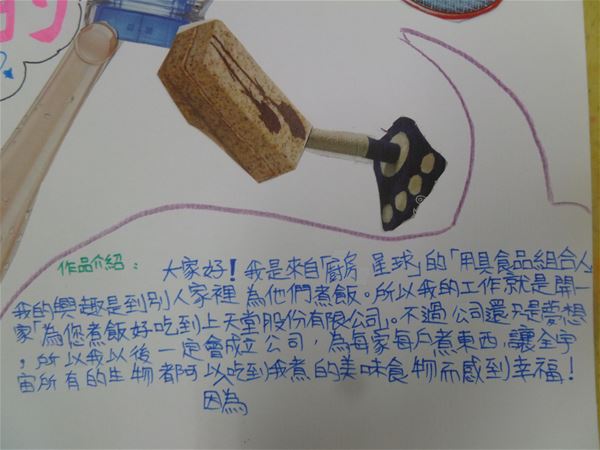 的
作品介紹: 大家好!我是來自「廚房 星球」的「用具食品組合人
我的興趣是到別人家裡 為他們煮飯。所以我的工作就是開一
家「為您煮飯好吃到上天堂股份有限公司」。不過公司還只是夢想
,所以我以後一定會成立公司,為每家每戶煮東西,讓全宇
宙所有的生物都可以吃到我煮的美味食物而感到幸福!
因為